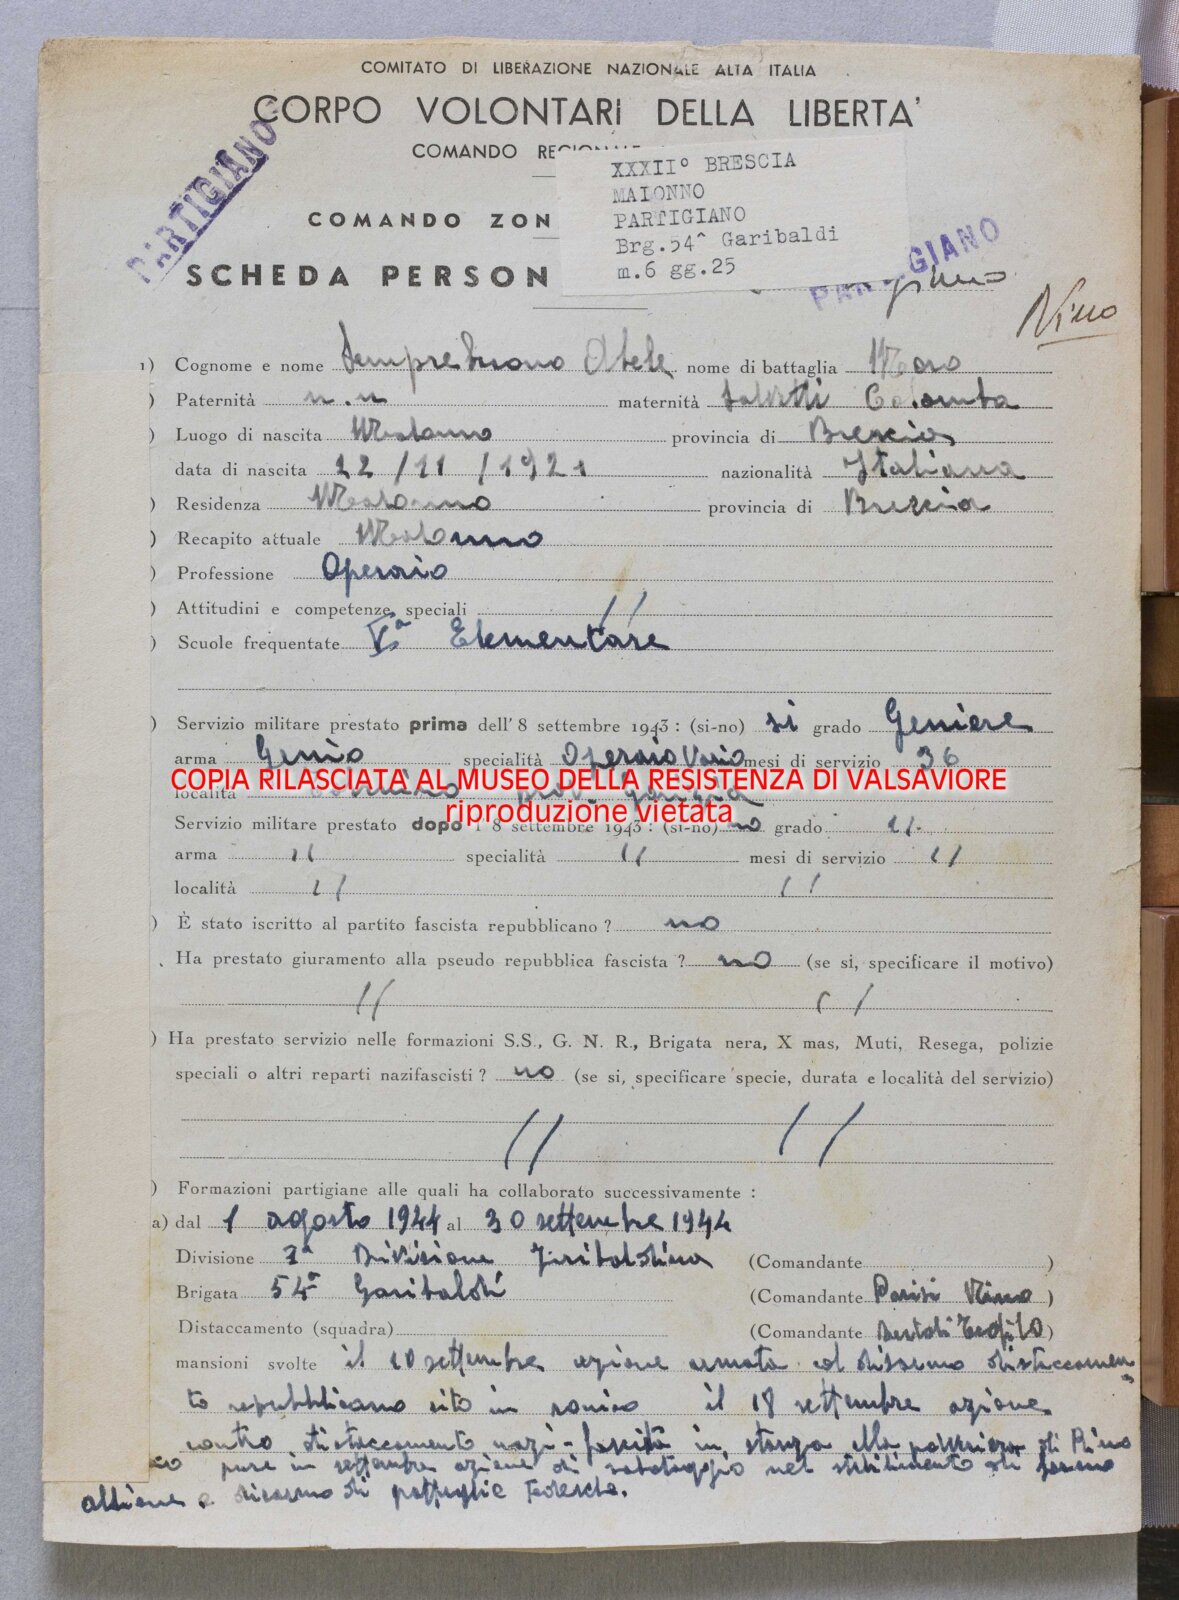 COMITATO DI LIBERAZIONE NAZIONALE ALTA ITALIA
CORPO VOLONTARI DELLA LIBERTA'
COMANDO REGIONALE
PARTIGIANO
XXXII° BRESCIA
MALONNO
PARTIGIANO
Brg.54^ Garibaldi
m.6 gg.25
COMANDO ZON
SCHEDA PERSON
PARTIGIANO
Nino
1) Cognome e nome Semprebuono Abele nome di battaglia Moro
) Paternità n.n maternità Salvetti Colomba
) Luogo di nascita Malonno provincia di Brescia
data di nascita 22/11/1921 nazionalità Italiana
) Residenza Malonno provincia di Brescia
) Recapito attuale Malonno
) Professione Operaio
) Attitudini e competenze speciali //
) Scuole frequentate Vª Elementare
) Servizio militare prestato prima dell' 8 settembre 1943 : (si-no) si grado Geniere
arma Genio specialità Operaio Vario mesi di servizio 36
COPIA RILASCIATA AL MUSEO DELLA RESISTENZA DI VALSAVIORE
località prov. Gorizia
riproduzione vietata
Servizio militare prestato dopo l' 8 settembre 1943 : (si-no) no grado //
arma // specialità // mesi di servizio //
località // //
) È stato iscritto al partito fascista repubblicano ? no
. Ha prestato giuramento alla pseudo repubblica fascista ? no (se si, specificare il motivo)
// //
) Ha prestato servizio nelle formazioni S.S., G. N. R., Brigata nera, X mas, Muti, Resega, polizie
speciali o altri reparti nazifascisti ? no (se si, specificare specie, durata e località del servizio)
// //
) Formazioni partigiane alle quali ha collaborato successivamente :
a) dal 1 agosto 1944 al 30 settembre 1944
Divisione 2ª Divisione Garibaldina (Comandante )
Brigata 54ª Garibaldi (Comandante Parisi Nino )
Distaccamento (squadra) (Comandante Bertoli Teofilo )
mansioni svolte il 10 settembre azione armata ed disarmo distaccamen
to repubblicano sito in sonico il 18 settembre azione
contro distaccamento nazi-fascista in stanza alla polveriera di Rino
pure in settembre azione di sabotaggio nel stabilimento di
e disarmo di pattuglie Tedesche.